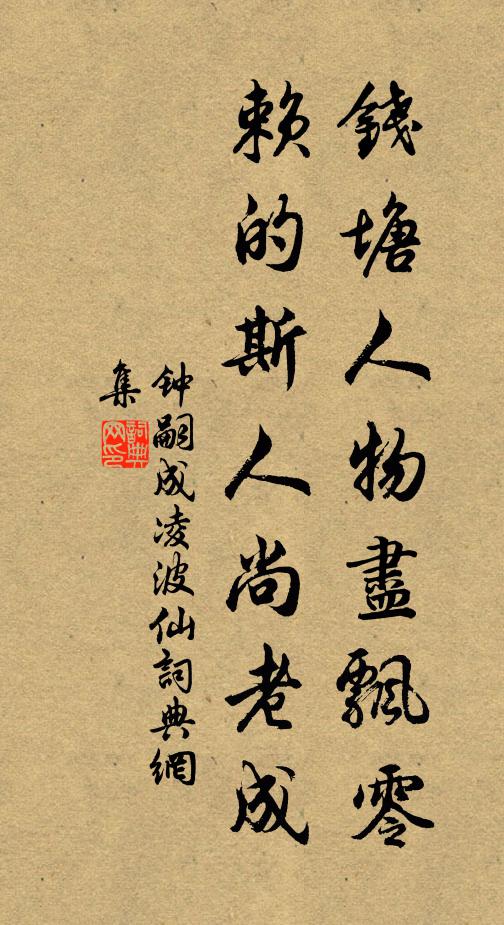 錢塘人物盡飄零
賴的斯人尚老成
钟嗣成凌波仙詞典網
集
詞典
网印